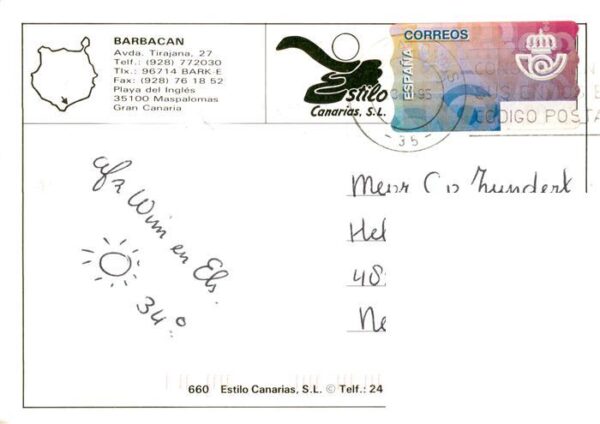 BARBACAN
Avda. Tirajana, 27
Telf.: (928) 772030
Tlx.: 96714 BARK-E
Fax: (928) 76 18 52
Playa del Inglés
35100 Maspalomas
Gran Canaria
Estilo
Canarias, S.L.
CORREOS
ESPAÑA
95
CODIGO POSTA
- 35 -
afz Wim en Els.
34°
Zundert
Hel
48
Ne
660 Estilo Canarias, S.L. © Telf.: 24